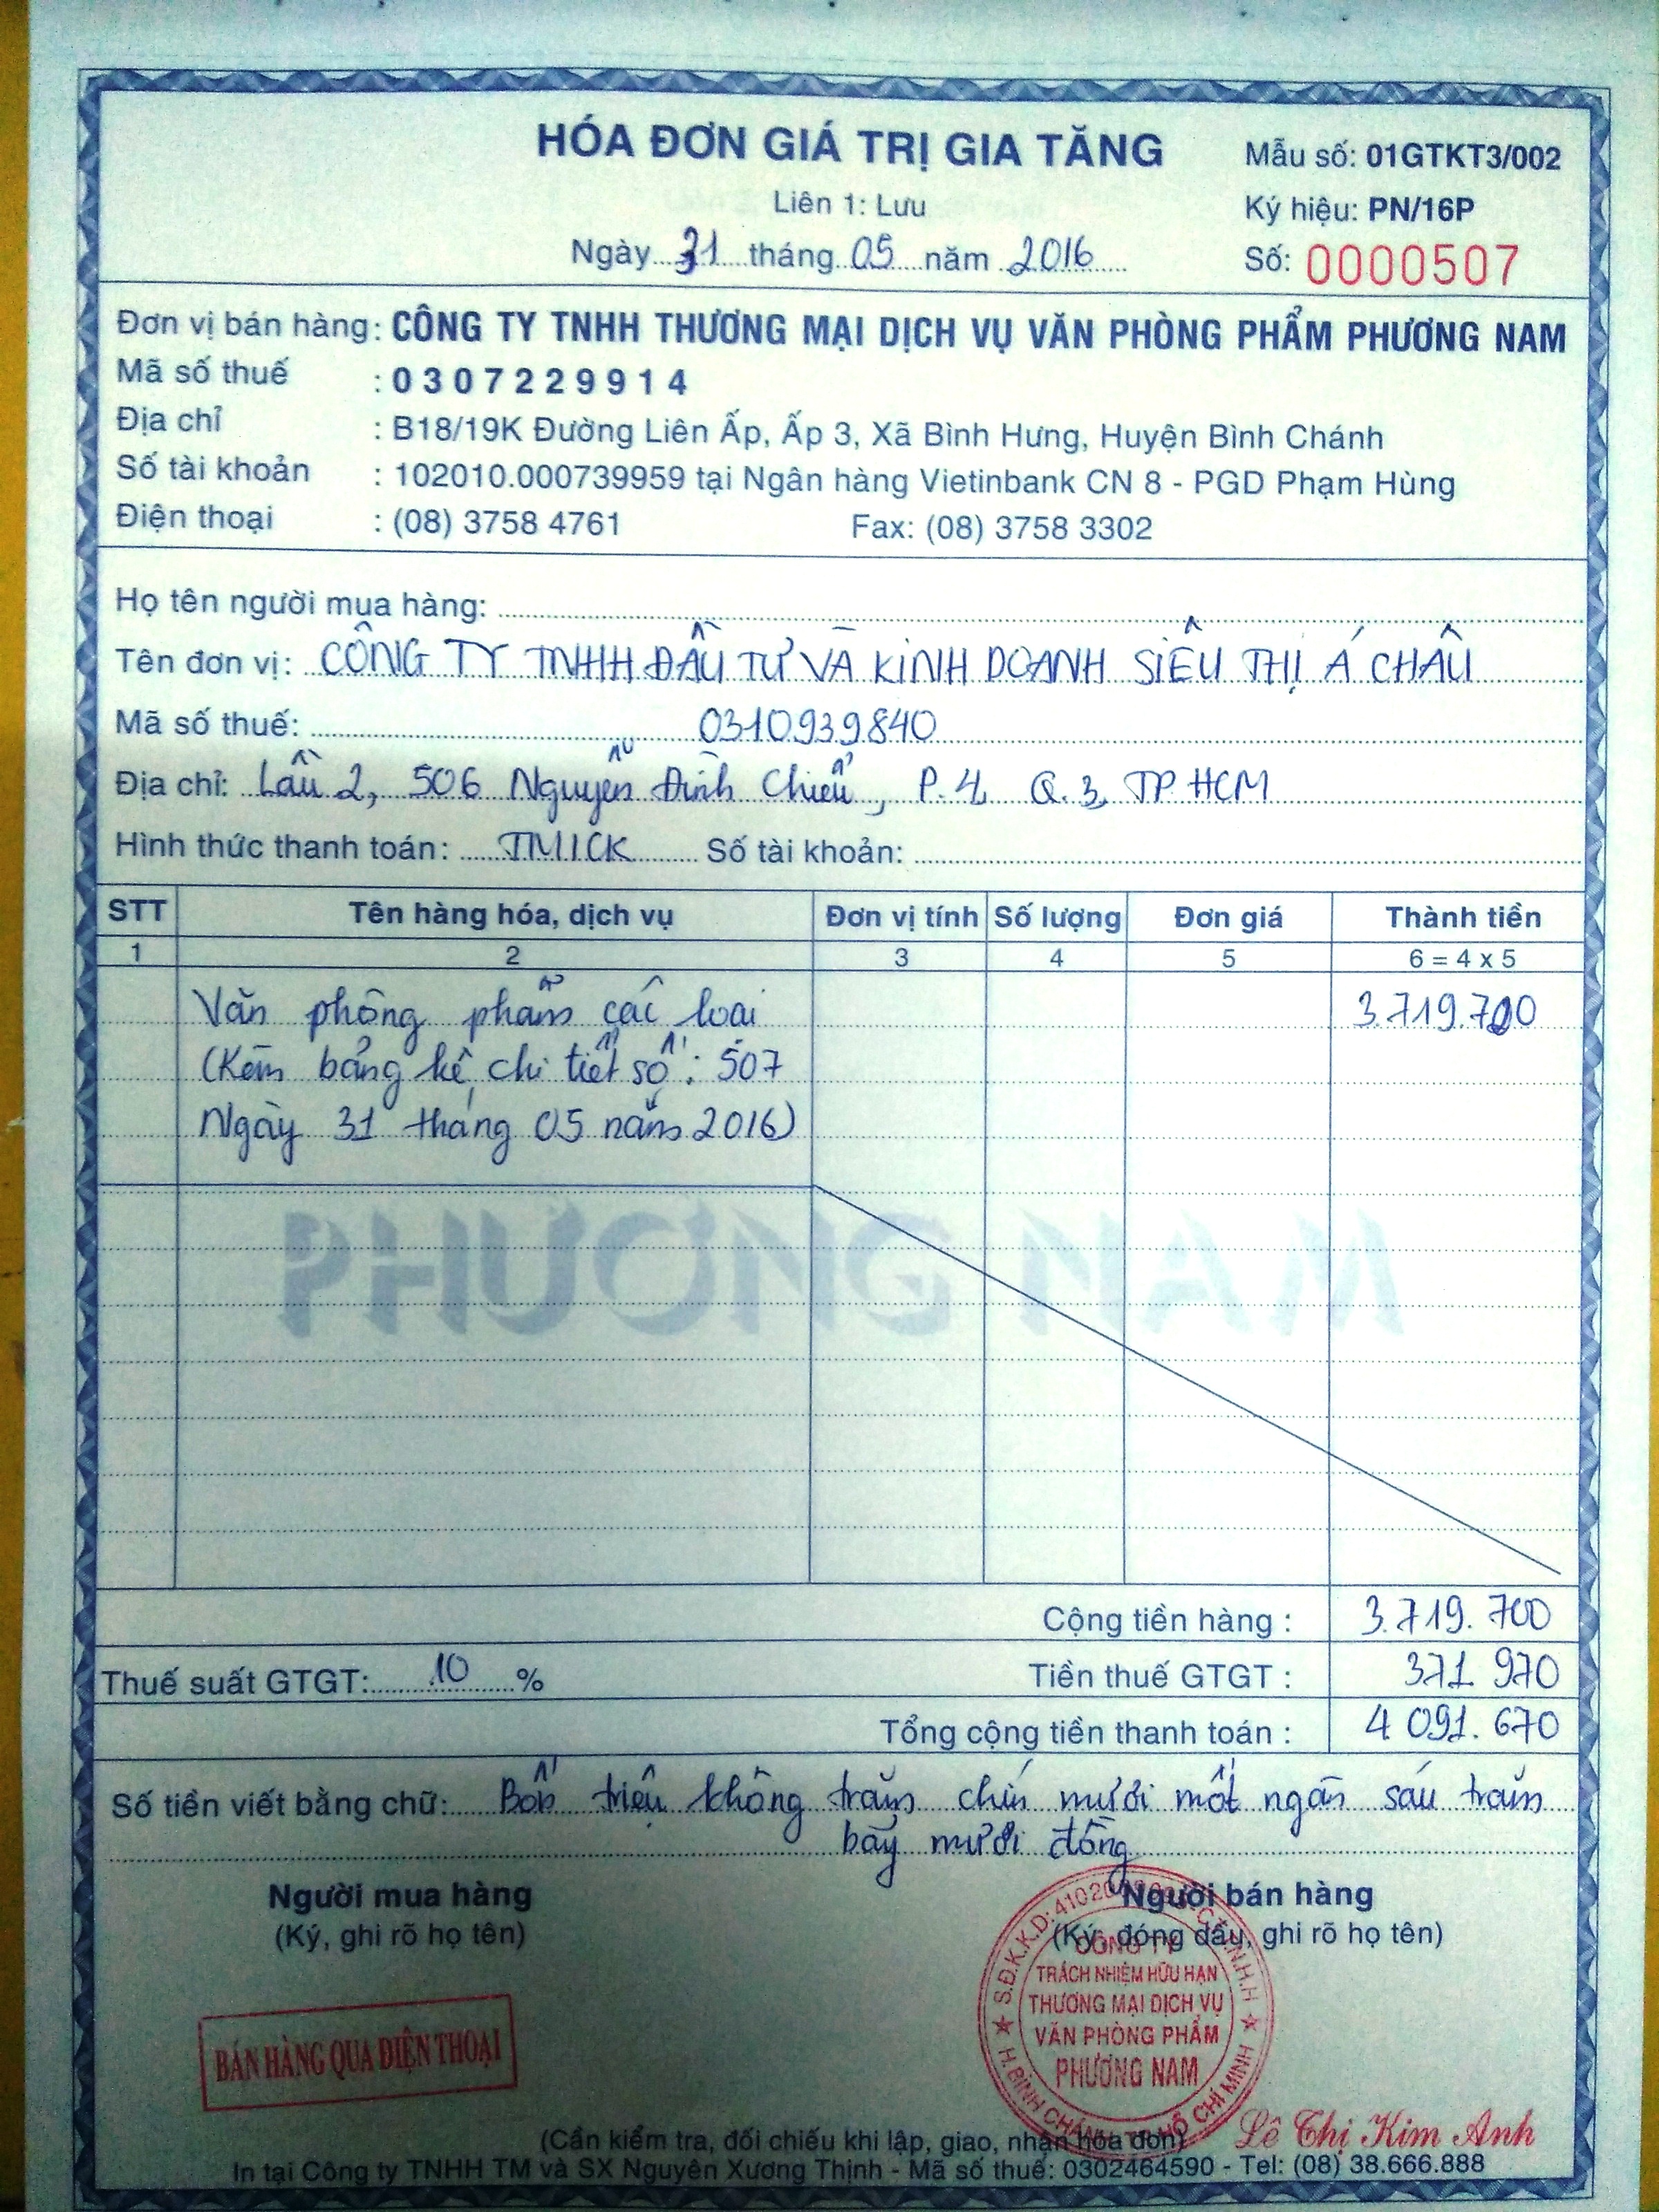 HÓA ĐƠN GIÁ TRỊ GIA TĂNG
Mẫu số: 01GTKT3/002
Liên 1: Lưu
Ký hiệu: PN/16P
Ngày 31 tháng 05 năm 2016
Số: 0000507
Đơn vị bán hàng: CÔNG TY TNHH THƯƠNG MẠI DỊCH VỤ VĂN PHÒNG PHẨM PHƯƠNG NAM
Mã số thuế : 0307229914
Địa chỉ : B18/19K Đường Liên Ấp, Ấp 3, Xã Bình Hưng, Huyện Bình Chánh
Số tài khoản : 102010.000739959 tại Ngân hàng Vietinbank CN 8 - PGD Phạm Hùng
Điện thoại : (08) 3758 4761 Fax: (08) 3758 3302
Họ tên người mua hàng:
Tên đơn vị: CÔNG TY TNHH ĐẦU TƯ VÀ KINH DOANH SIÊU THỊ Á CHÂU
Mã số thuế: 0310939840
Địa chỉ: Lầu 2, 506 Nguyễn Đình Chiểu, P.4, Q.3, TP HCM
Hình thức thanh toán: TM/CK Số tài khoản:
STT Tên hàng hóa, dịch vụ Đơn vị tính Số lượng Đơn giá Thành tiền
1 2 3 4 5 6 = 4 x 5
Văn phòng phẩm các loại 3.719.700
(Kèm bảng kê chi tiết số: 507
Ngày 31 tháng 05 năm 2016)
PHƯƠNG NAM
Cộng tiền hàng : 3.719.700
Thuế suất GTGT: 10 % Tiền thuế GTGT : 371 970
Tổng cộng tiền thanh toán : 4 091.670
Số tiền viết bằng chữ: Bốn triệu không trăm chín mươi mốt ngàn sáu trăm
bảy mươi đồng
Người mua hàng Người bán hàng
(Ký, ghi rõ họ tên) (Ký, đóng dấu, ghi rõ họ tên)
CÔNG TY
TRÁCH NHIỆM HỮU HẠN
THƯƠNG MẠI DỊCH VỤ
VĂN PHÒNG PHẨM
PHƯƠNG NAM
H.BÌNH CHÁNH - TP HỒ CHÍ MINH
BÁN HÀNG QUA ĐIỆN THOẠI
Lê Thị Kim Anh
(Cần kiểm tra, đối chiếu khi lập, giao, nhận hóa đơn)
In tại Công ty TNHH TM và SX Nguyên Xương Thịnh - Mã số thuế: 0302464590 - Tel: (08) 38.666.888